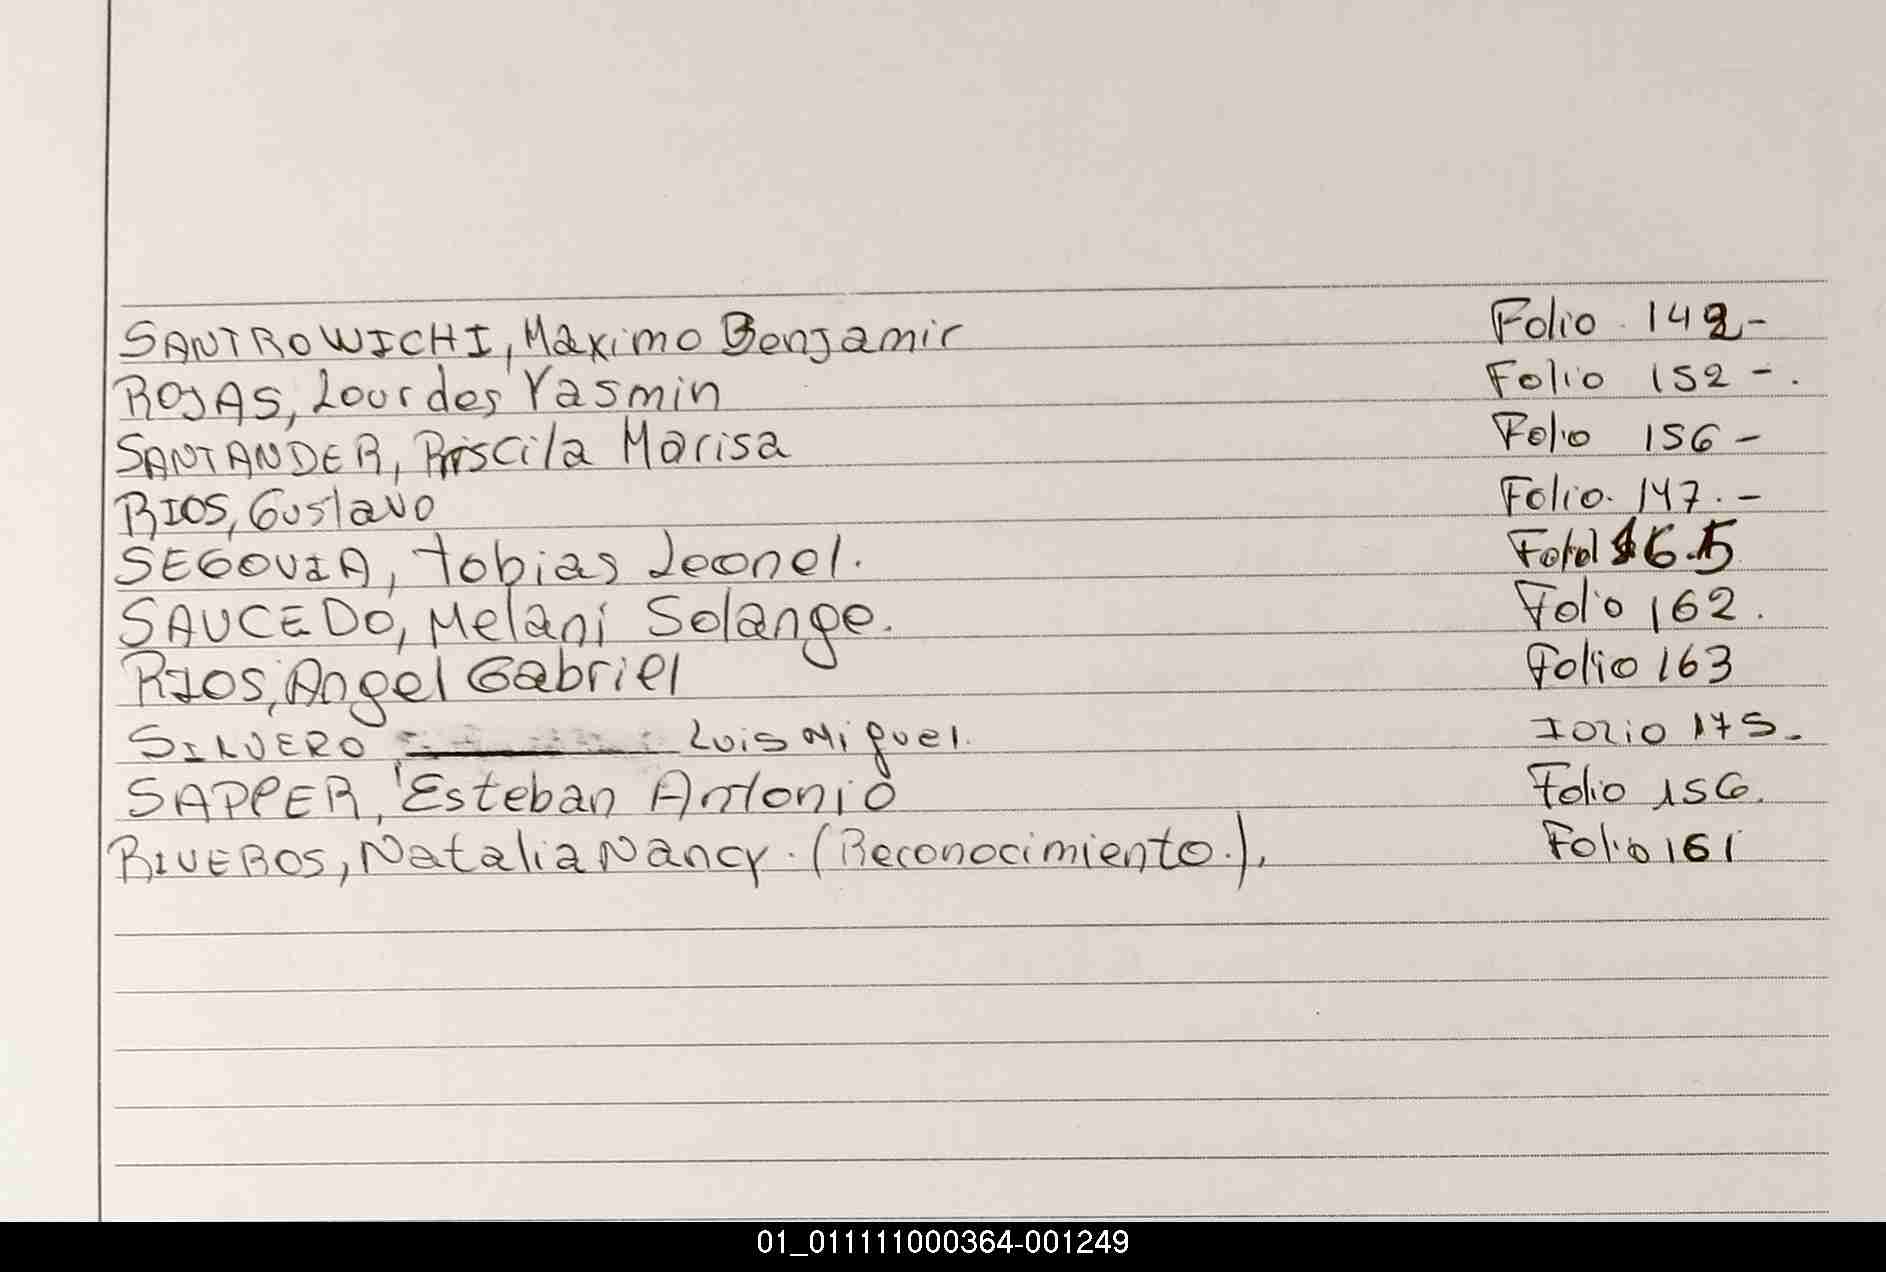 SANTROWICHI, Maximo Benjamin Folio 142-
ROJAS, Lourdes Yasmin Folio 152-.
SANTANDER, Priscila Marisa Folio 156-
RIOS, Gustavo Folio. 147.-
SEGOVIA, Tobias Leonel. 165
SAUCEDO, Melani Solange. Folio 162.
RIOS, Angel Gabriel Folio 163
SILVERO Luis Miguel. Folio 175.
SAPPER, Esteban Antonio Folio 156.
RIVEROS, Natalia Nancy. (Reconocimiento.). Folio 161
01_011111000364-001249